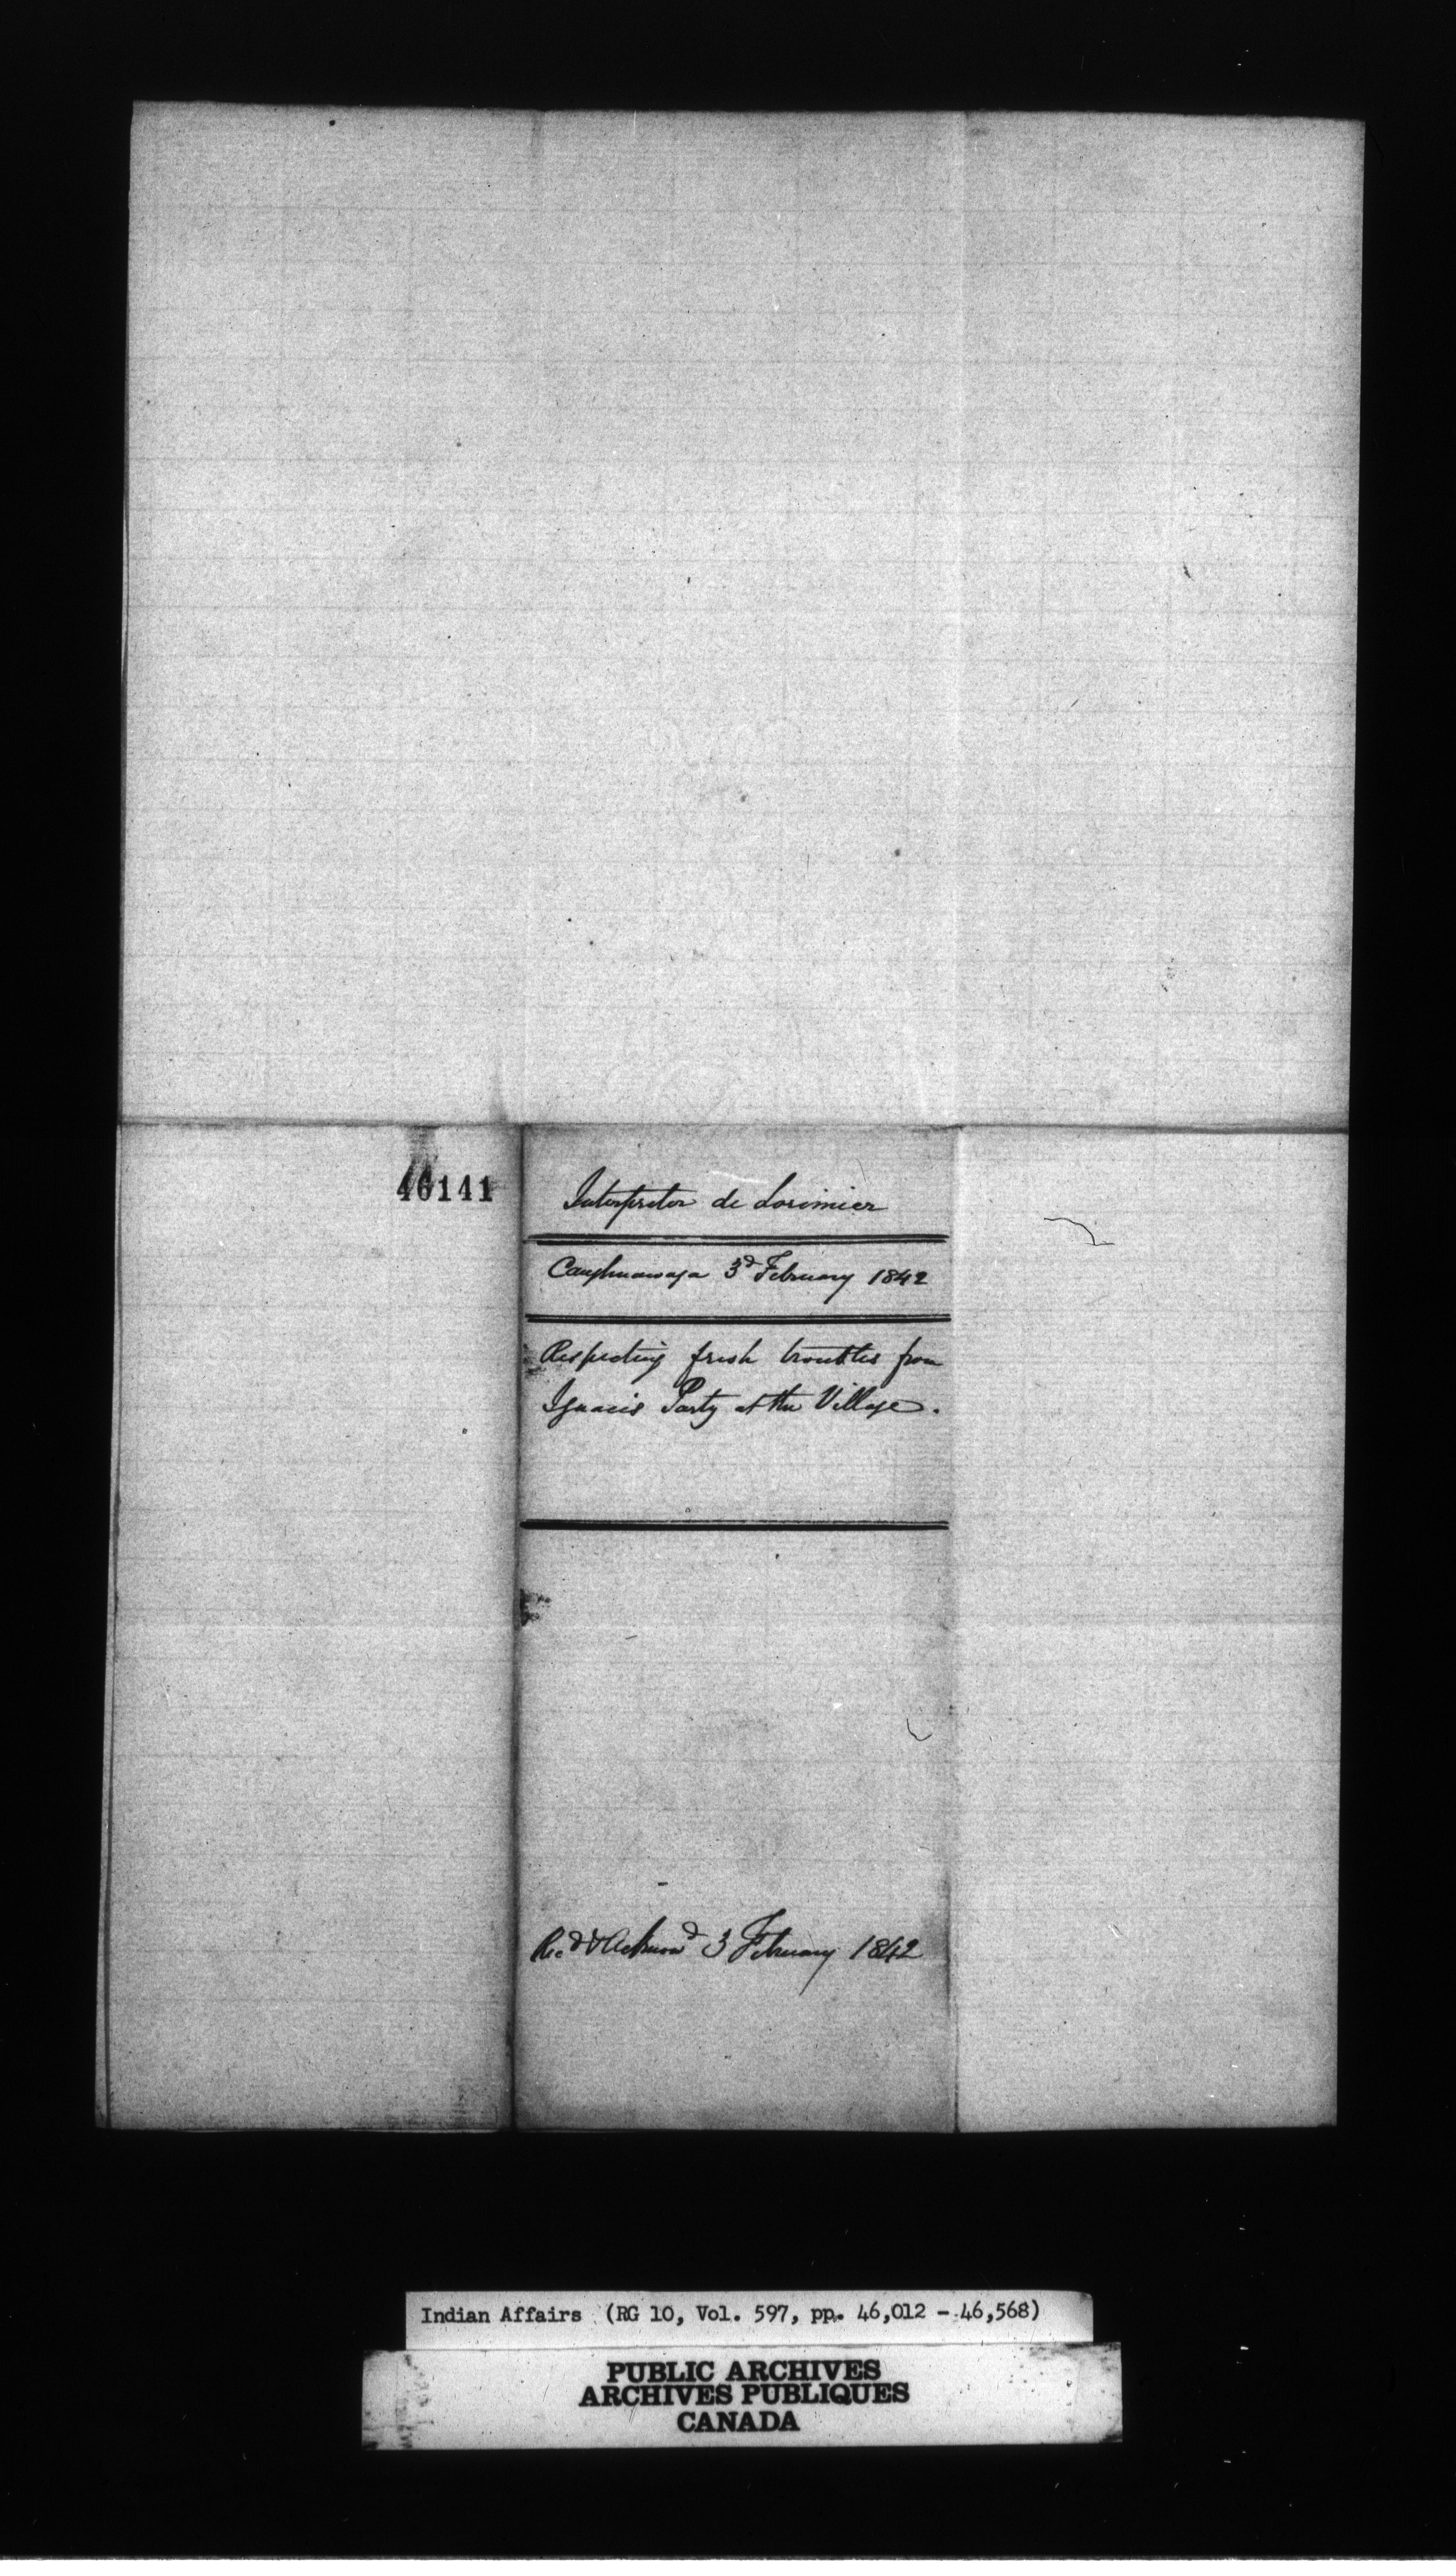 46141
Interpreter de Lorimier
Caughnawaga 3d February 1842
Respecting fresh troubles from
Ignacis Party at the Village.
Recd & Acknowd 3 February 1842
Indian Affairs (RG 10, Vol. 597, pp. 46,012 - 46,568)
PUBLIC ARCHIVES
ARCHIVES PUBLIQUES
CANADA